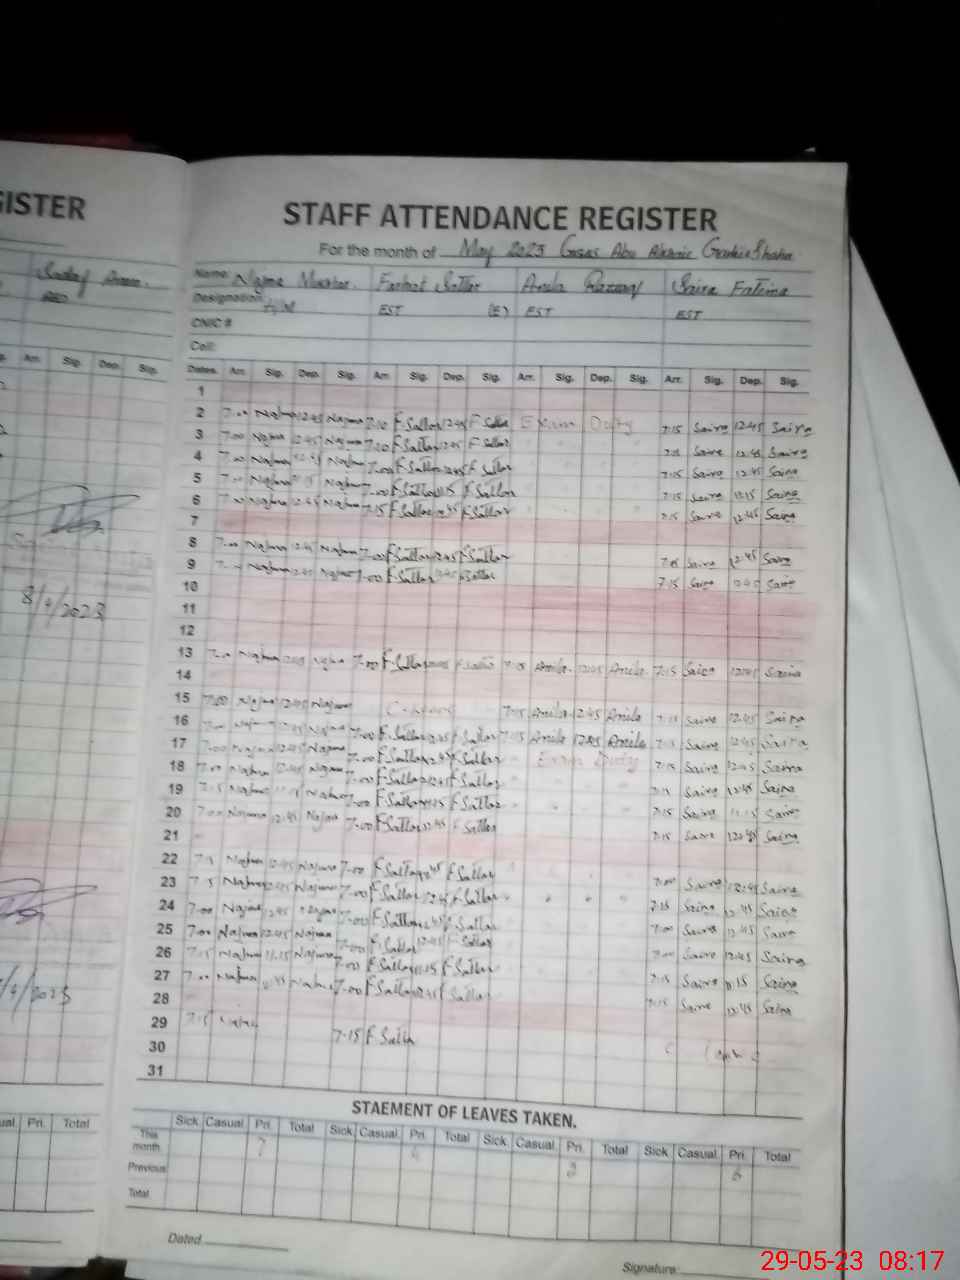 GISTER
STAFF ATTENDANCE REGISTER
For the month of May 2023
Name: Najma Farhat Sattar Anila Saira Fatima
Designation EST (E) EST EST
CNIC #
Cell:
Dates. Arr. Sig. Dep. Sig. Arr. Sig. Dep. Sig. Arr. Sig. Dep. Sig. Arr. Sig. Dep. Sig.
1
2 7.00 Najma 12.45 Najma 7.00 F. Sattar 12.45 F. Sattar Exam Duty 7.15 Saira 12.45 Saira
3 7.00 Najma 12.45 Najma 7.00 F. Sattar 12.45 F. Sattar 7.15 Saira 12.45 Saira
4 7.00 Najma 12.45 Najma 7.00 F. Sattar 12.45 F. Sattar 7.15 Saira 12.45 Saira
5 7.00 Najma Najma 7.00 F. Sattar F. Sattar 7.15 Saira 11.15 Saira
6 7.00 Najma 12.45 Najma 7.15 F. Sattar 12.45 F. Sattar 7.15 Saira 12.45 Saira
7
8 7.00 Najma 12.45 Najma 7.00 F. Sattar 12.45 F. Sattar 7.15 Saira 12.45 Saira
9 Najma 12.45 Najma 7.00 F. Sattar 12.45 F. Sattar 7.15 Saira 12.45 Saira
10
11
12
13 7.00 Najma Najma 7.00 F. Sattar F. Sattar 7.15 Anila 12.45 Anila 7.15 Saira 12.45 Saira
14
15 7.00 Najma 12.45 Najma 7.15 Anila 12.45 Anila 7.15 Saira 12.45 Saira
16 7.00 Najma 12.45 Najma 7.00 F. Sattar 12.45 F. Sattar 7.15 Anila 12.45 Anila 7.15 Saira 12.45 Saira
17 7.00 Najma 12.45 Najma 7.00 F. Sattar 12.45 F. Sattar Exam Duty 7.15 Saira 12.45 Saira
18 7.00 Najma 12.45 Najma 7.00 F. Sattar 12.45 F. Sattar 7.15 Saira 12.45 Saira
19 7.15 Najma 11.15 Najma 7.00 F. Sattar 11.15 F. Sattar 7.15 Saira 11.15 Saira
20 7.00 Najma 12.45 Najma 7.00 F. Sattar 12.45 F. Sattar 7.15 Saira 12.45 Saira
21
22 7.15 Najma 12.45 Najma 7.00 F. Sattar 12.45 F. Sattar 7.00 Saira 12.45 Saira
23 7.15 Najma 12.45 Najma 7.00 F. Sattar 12.45 F. Sattar 7.15 Saira 12.45 Saira
24 7.00 Najma 12.45 Najma 7.00 F. Sattar 12.45 F. Sattar 7.00 Saira 12.45 Saira
25 7.00 Najma 12.45 Najma 7.00 F. Sattar 12.45 F. Sattar 7.00 Saira 12.45 Saira
26 7.15 Najma 11.15 Najma 7.00 F. Sattar 11.15 F. Sattar 7.15 Saira 11.15 Saira
27 7.00 Najma 12.45 Najma 7.00 F. Sattar 12.45 F. Sattar 7.15 Saira 12.45 Saira
28
29 7.15 Najma 7.15 F. Sattar
30
31
8/4/2023
/4/2023
STAEMENT OF LEAVES TAKEN.
Sick Casual Pri. Total Sick Casual Pri. Total Sick Casual Pri. Total Sick Casual Pri. Total
This month
Previous
Total
Pri. Total
Dated
Signature:
29-05-23 08:17